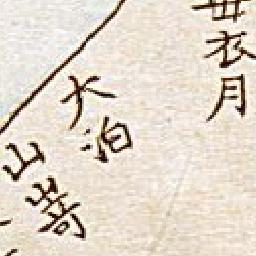 衣月
大泊
山嵜